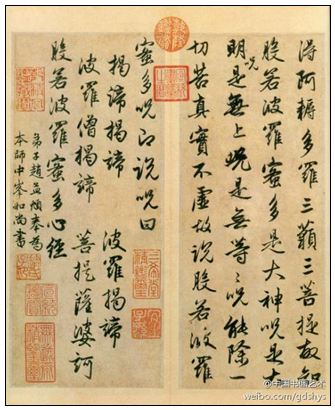 得阿耨多羅三藐三菩提故知
般若波羅蜜多是大神呪是大
明呪是無上呪是無等〻呪能除一
切苦真實不虛故說般若波羅
蜜多呪即說呪曰
揭諦揭諦 波羅揭諦
波羅僧揭諦 菩提薩婆訶
般若波羅蜜多心經
弟子趙孟頫奉為
本師中峯和尚書
weibo.com/gdshys